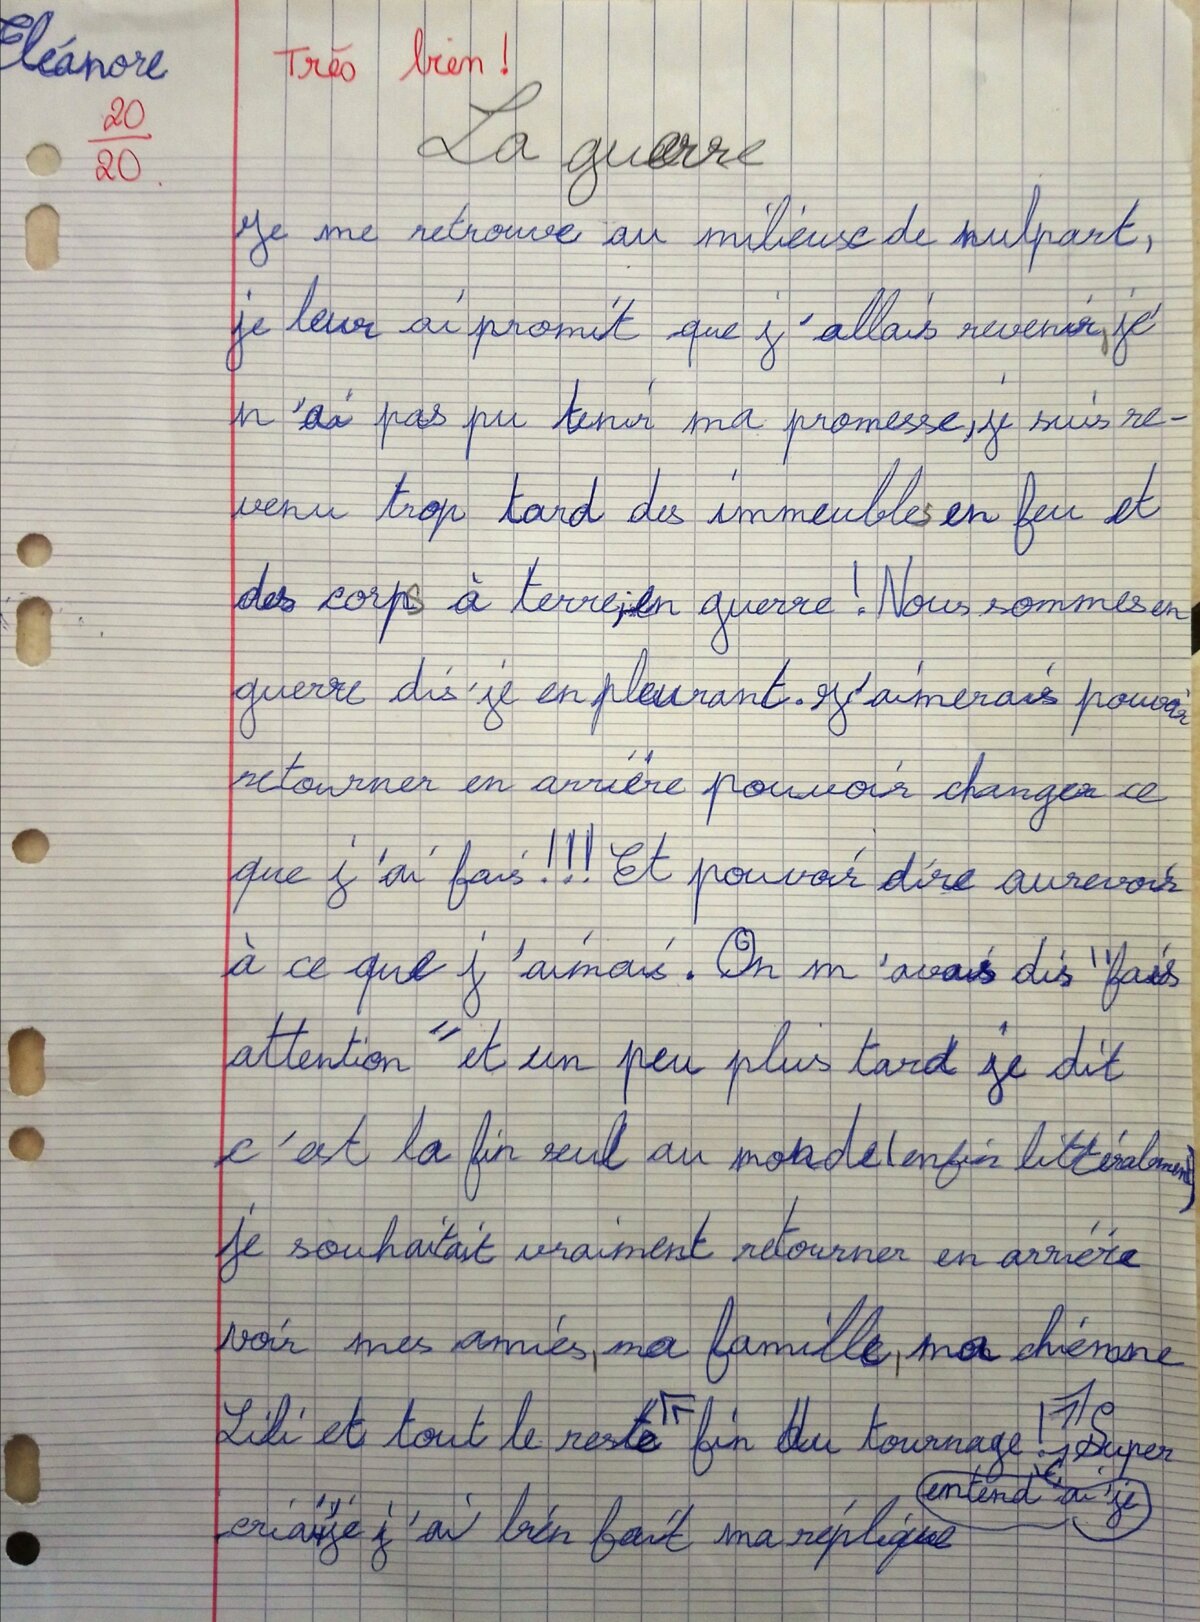 Eléanore
Très bien !
20
20
La guerre
Je me retrouve au milieux de nulpart,
je leur ai promit que j'allais revenir, je
n'ai pas pu tenir ma promesse, je suis re-
venu trop tard des immeubles en feu et
des corps à terre, en guerre ! Nous sommes en
guerre dis'je en pleurant. J'aimerais pouvoir
retourner en arriére pouvoir changer ce
que j'ai fais !!! Et pouvoir dire aurevoir
à ce que j'aimais. On m'avais dis "fais
attention" et un peu plus tard je dit
c'est la fin seul au monde (enfin littéralement)
je souhaitait vraiment retourner en arriére
voir mes amies, ma famille, ma chienne
Lili et tout le reste " fin du tournage ! " Super
entend'ai'je
criai'je j'ai bien fait ma réplique